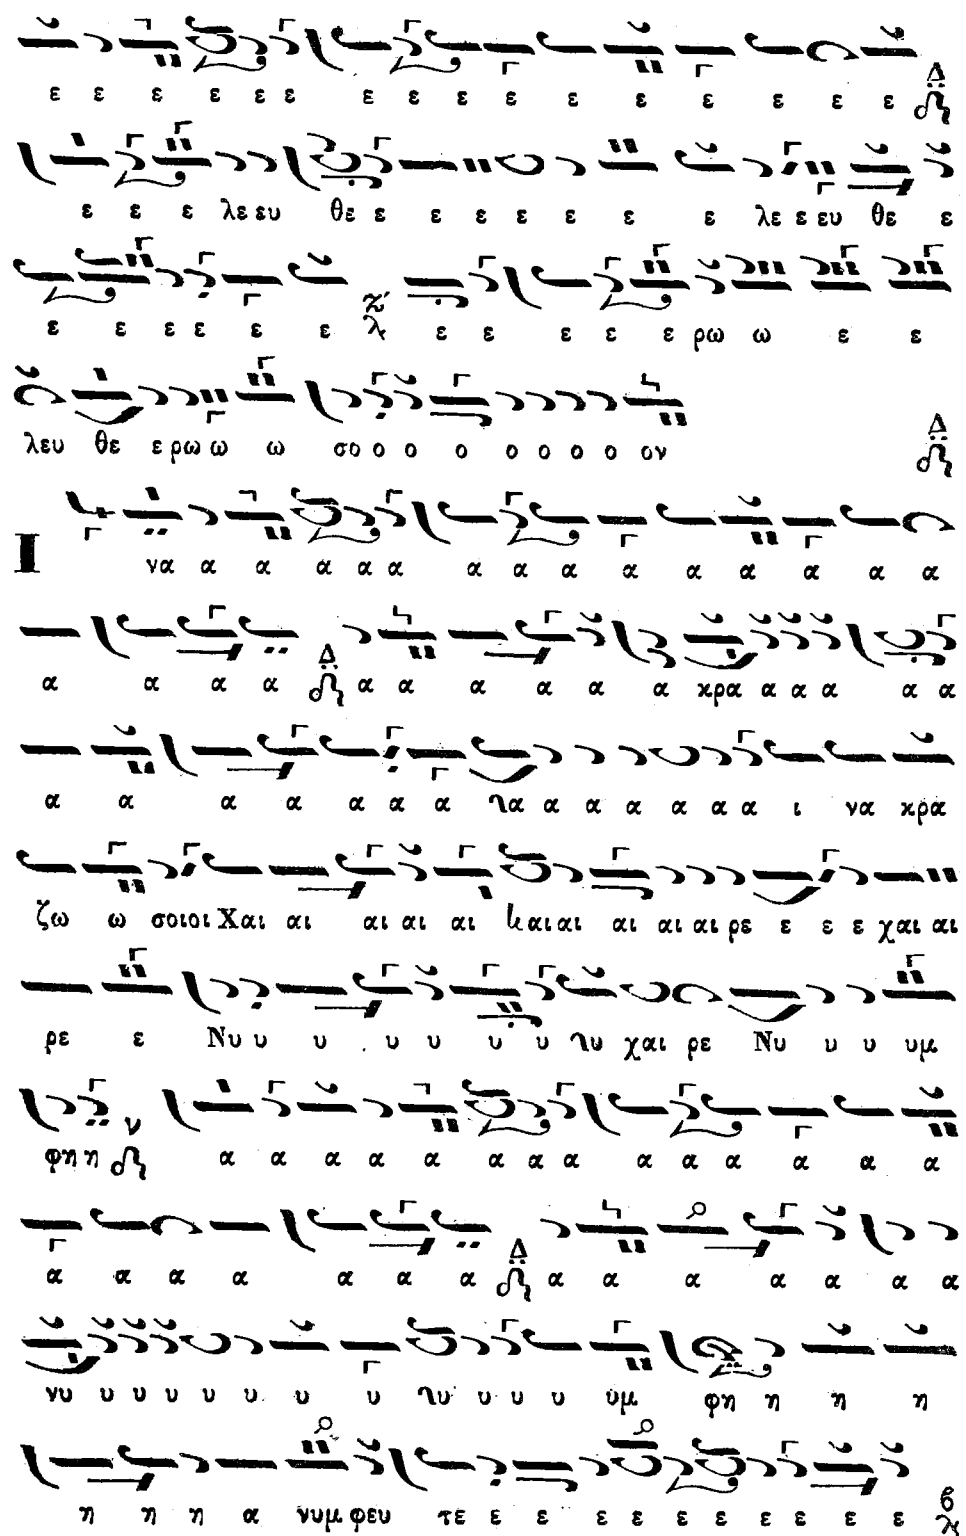 ε ε ε ε ε ε ε ε ε ε ε ε ε ε ε ε Δ
ε ε ε λε ευ θε ε ε ε ε ε ε ε λε ε ευ θε ε
ε ε ε ε ε ε ζ΄ ε ε ε ε ε ρω ω ε ε
λευ θε ε ρω ω ω σο ο ο ο ο ο ο ο ον Δ
Ι να α α α α α α α α α α α α α α
α α α α Δ α α α α α α κρα α α α α α
α α α α α α α α α α α α α α ι να κρα
ζω ω σοιοι Χαι αι αι αι αι και αι αι αι αι ρε ε ε ε χαι αι
ρε ε Νυ υ υ υ υ υ υ υ χαι ρε Νυ υ υ υμ
φη η ν α α α α α α α α α α α α α α
α α α α α α α Δ α α α α α α α
νυ υ υ υ υ υ υ υ υ υ υ υ υμ φη η η η
η η η α νυμ φευ τε ε ε ε ε ε ε ε ε ε β